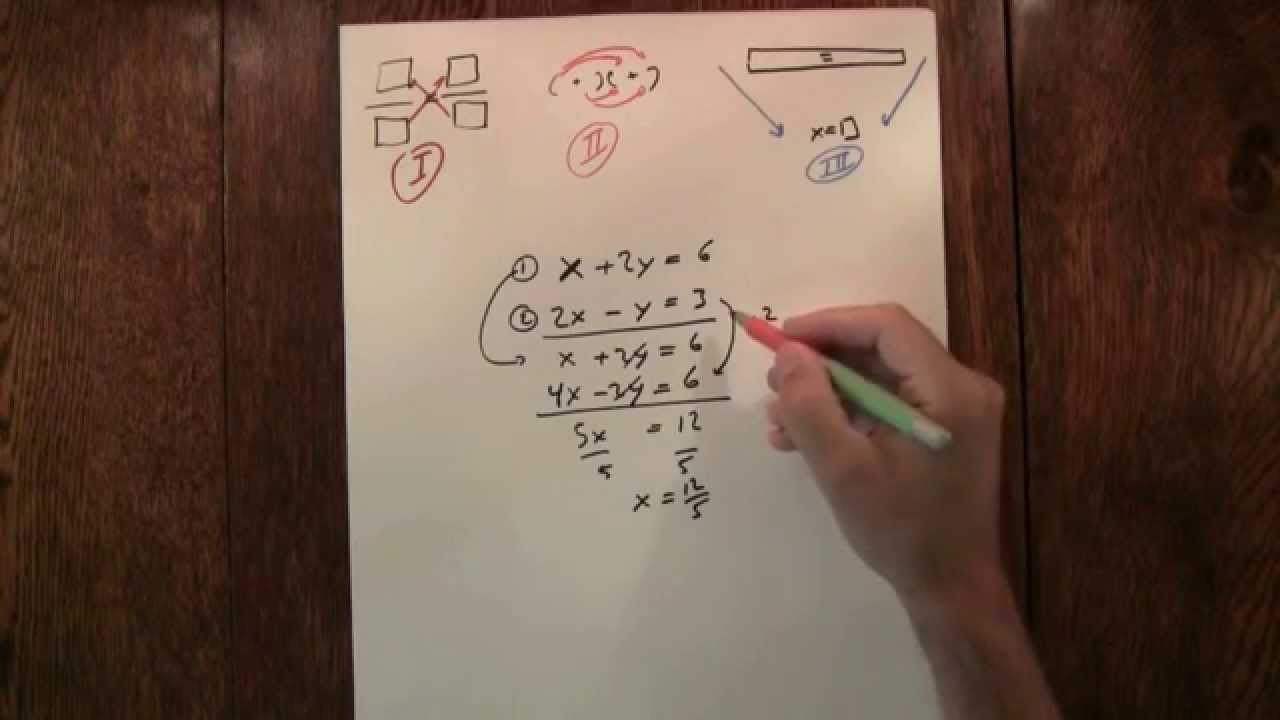 ( + )( + )
=
x = □
I
II
III
① x + 2y = 6
② 2x - y = 3
· 2
x + 2y = 6
4x - 2y = 6
5x = 12
5 5
x = 12/5